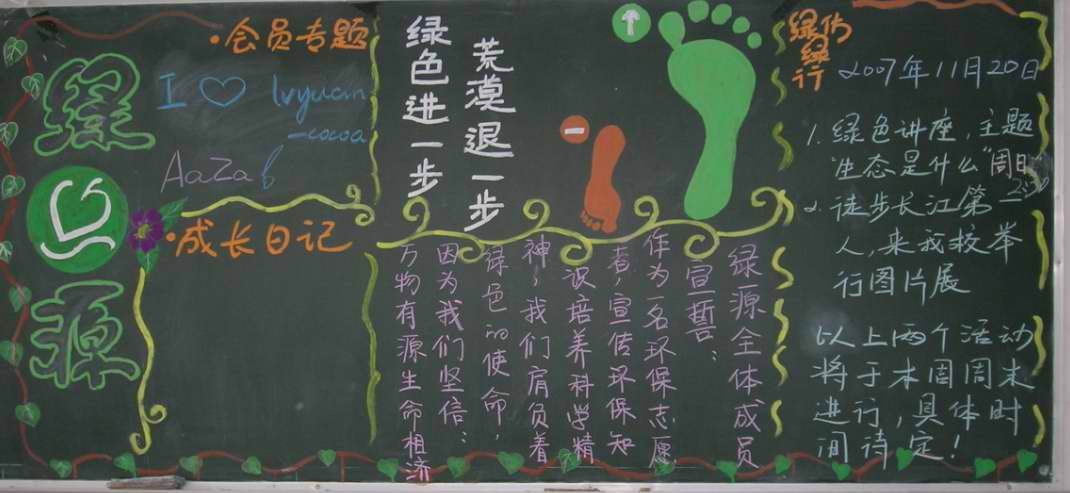 绿
源
·会员专题
I ♡ lvyuan
-cocoa
AaZab
·成长日记
绿色进一步
荒漠退一步
绿源全体成员
宣誓：
作为一名环保志愿
者，宣传环保知
识培养科学精
神，我们肩负着
绿色的使命，
因为我们坚信：
万物有源生命相济
绿
绿
行
2007年11月20日
1. 绿色讲座，主题
"生态是什么"周日
2. 徒步长江第一
人，来我校举
行图片展
以上两个活动
将于本周周末
进行，具体时
间待定！